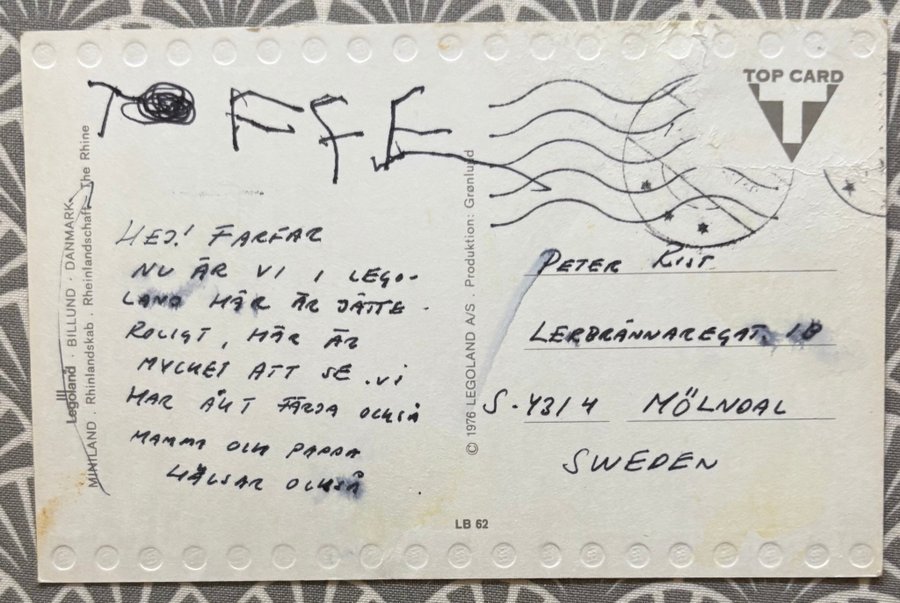 TOP CARD
TOFFE
HEJ! FARFAR
NU ÄR VI I LEGO-
LAND HÄR ÄR JÄTTE-
ROLIGT, HÄR ÄR
MYCKET ATT SE. VI
HAR ÅKT FÄRJA OCKSÅ
MAMMA OCH PAPPA
HÄLSAR OCKSÅ
PETER RIST
LERBRÄNNAREGAT. 18
S-4314 MÖLNDAL
SWEDEN
Legoland · BILLUND · DANMARK
MINILAND . Rhinlandskab . Rheinlandschaft . The Rhine
© 1976 LEGOLAND A/S . Produktion: Grønlund
LB 62